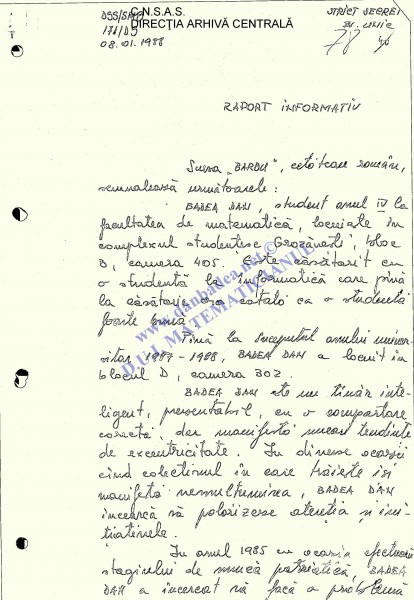 DSS/SMB
C.N.S.A.S.
STRICT SECRET
171/D5
DIRECŢIA ARHIVĂ CENTRALĂ
Ex. unic
08.01.1988
78
RAPORT INFORMATIV
Sursa „BARBU", cetăţean român,
semnalează următoarele:
BADEA DAN, student anul IV la
facultatea de matematică, locuieşte în
complexul studenţesc Grozăveşti, bloc
B, camera 405. Este căsătorit cu
o studentă la informatică care pînă
la căsătorie era cotată ca o studentă
foarte bună.
Pînă la începutul anului univer-
sitar 1987-1988, BADEA DAN a locuit în
blocul D, camera 302.
BADEA DAN este un tînăr inte-
ligent, prezentabil, cu o comportare
corectă, dar manifestă uneori tendinţe
de excentricitate. In diverse ocazii
cînd colectivul în care trăieşte îşi
manifestă nemulţumirea, BADEA DAN
încearcă să polarizeze atenţia şi ini-
ţiativele.
In anul 1985 cu ocazia efectuării
stagiului de muncă patriotică, BADEA
DAN a încercat să facă o problemă
www.danbadea.net ©
D.U.I. MATEMATICIANUL